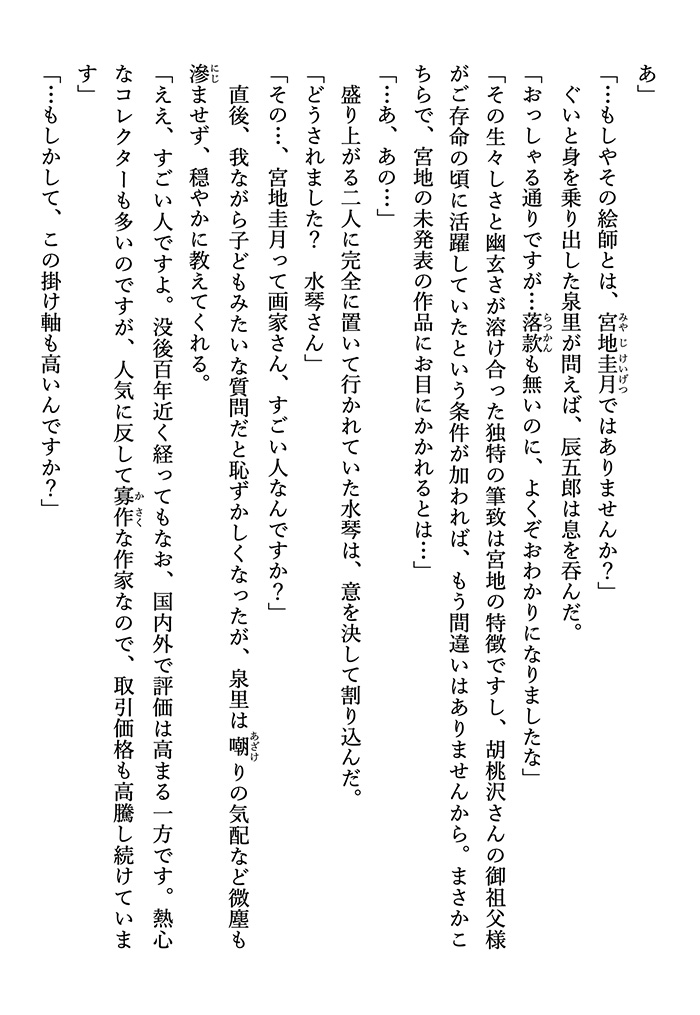 あ」
「…もしやその絵師とは、宮地圭月ではありませんか？」
ぐいと身を乗り出した泉里が問えば、辰五郎は息を呑んだ。
「おっしゃる通りですが…落款も無いのに、よくぞおわかりになりましたな」
「その生々しさと幽玄さが溶け合った独特の筆致は宮地の特徴ですし、胡桃沢さんの御祖父様
がご存命の頃に活躍していたという条件が加われば、もう間違いはありませんから。まさかこ
ちらで、宮地の未発表の作品にお目にかかれるとは…」
「…あ、あの…」
盛り上がる二人に完全に置いて行かれていた水琴は、意を決して割り込んだ。
「どうされました？　水琴さん」
「その…、宮地圭月って画家さん、すごい人なんですか？」
直後、我ながら子どもみたいな質問だと恥ずかしくなったが、泉里は嘲りの気配など微塵も
滲ませず、穏やかに教えてくれる。
「ええ、すごい人ですよ。没後百年近く経ってもなお、国内外で評価は高まる一方です。熱心
なコレクターも多いのですが、人気に反して寡作な作家なので、取引価格も高騰し続けていま
す」
「…もしかして、この掛け軸も高いんですか？」